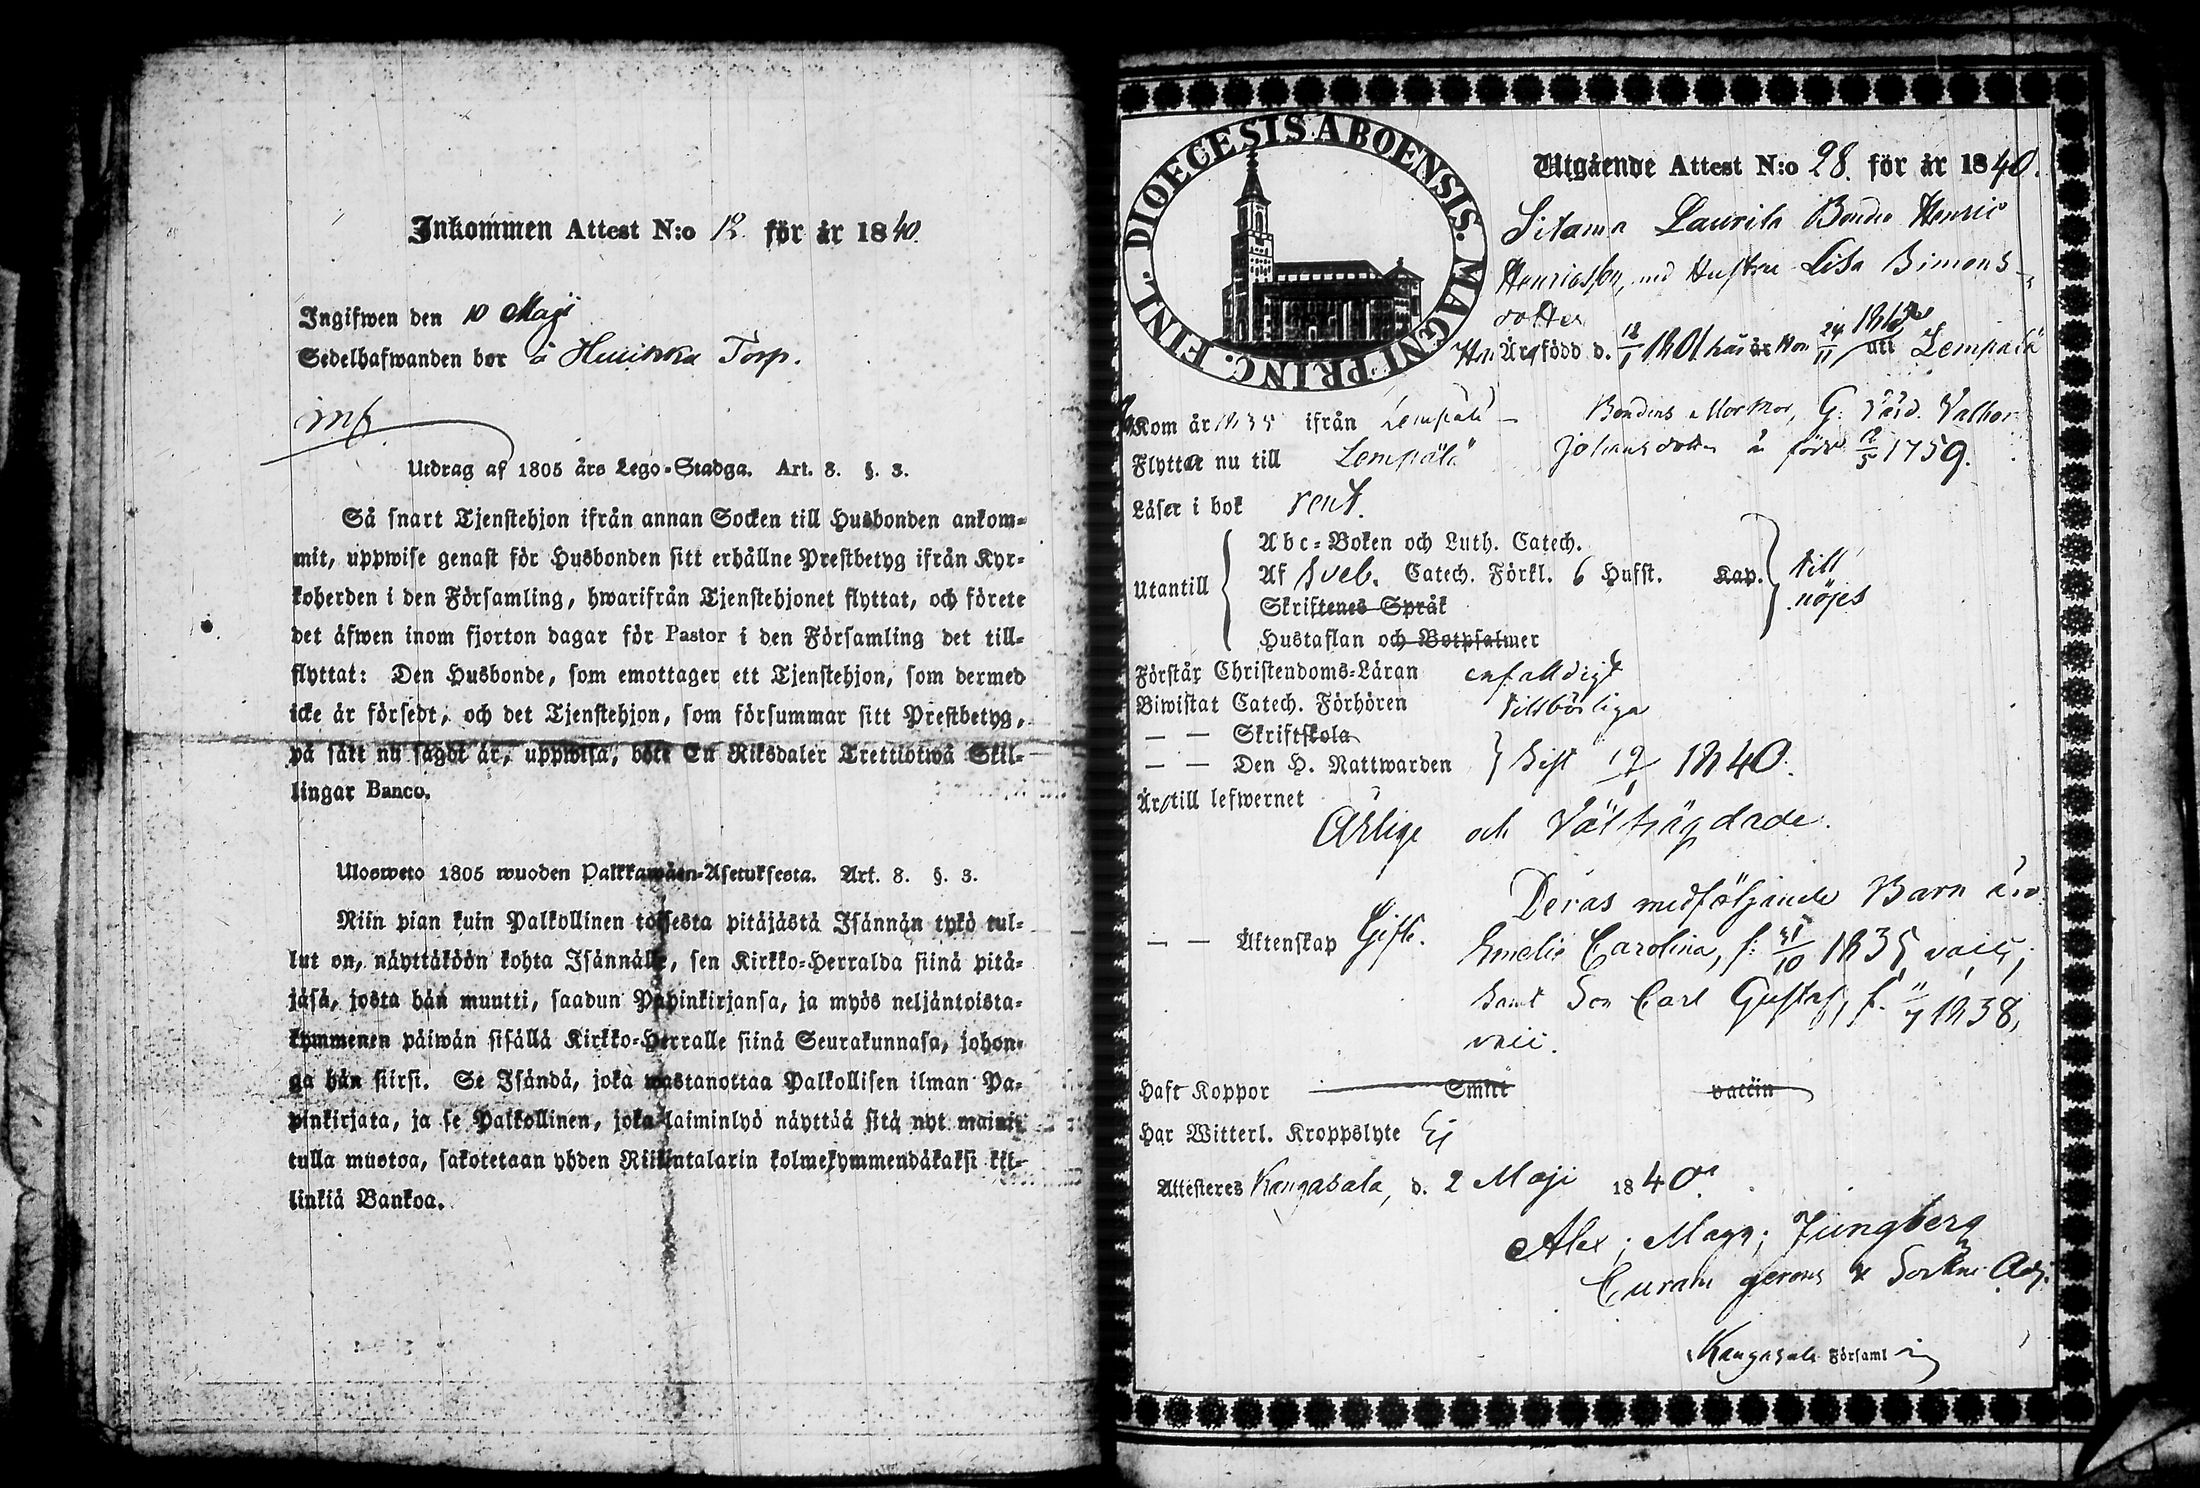 Inkommen Attest N:o 12 för år 1840.
Ingifwen den 10 Maji
Sedelhafwanden bor å Torp.
Utdrag af 1805 års Lego-Stadga. Art. 8. §. 3.
Så snart Tjenstehjon ifrån annan Socken till Husbonden ankom-
mit, uppwise genast för Husbonden sitt erhållne Prestbetyg ifrån Kyr-
koherden i den Församling, hwarifrån Tjenstehjonet flyttat, och förete
det äfwen inom fjorton dagar för Pastor i den Församling det till-
flyttat: Den Husbonde, som emottager ett Tjenstehjon, som dermed
icke är försedt, och det Tjenstehjon, som försummar sitt Prestbetyg,
på sätt nu sagdt är, uppwisa, böte En Riksdaler Trettiotwå Skil-
lingar Banco.
Ulosweto 1805 wuoden Palkkawäen-Asetuksesta. Art. 8. §. 3.
Niin pian kuin Palkollinen toisesta pitäjästä Isännän tykö tul-
lut on, näyttäköön kohta Isännälle, sen Kirkko-Herralda siinä pitä-
jäsä, josta hän muutti, saadun Papinkirjansa, ja myös neljäntoista-
kymmenen päiwän sisällä Kirkko-Herralle siinä Seurakunnasa, johon-
ga hän siirsi. Se Isändä, joka wastanottaa Palkollisen ilman Pa-
pinkirjata, ja se Palkollinen, joka laiminlyö näyttää sitä nyt mainit-
tulla muotoa, sakotetaan yhden Riikintalarin kolmekymmendäkaksi kil-
linkiä Bankoa.
DIOECESIS ABOENSIS. MAGNI PRINC. FINL.
Utgående Attest N:o 28. för år 1840.
Sitama Laurila Bonde Henric
Henricsson, med Hustru Lisa Simons-
dotter
Han Är född d. 12/1 1801 här Hon 24/11 uti Lempälä
Kom år 1835 ifrån Lempälä – Bondens Mormor, G. Värd. Valbor
Flyttar nu till Lempälä Johansdotter är född 2/5 1759.
Läser i bok rent.
Utantill
Abc-Boken och Luth. Catech.
Af Sveb. Catech. Förkl. 6 Hufst. Kap. till
nöjes
Skriftenes Språk
Hustaflan och Botpsalmer
Förstår Christendoms-Läran enfalldigt
Biwistat Catech. Förhören tillbörliga
— — Skriftskola
— — Den H. Nattwarden Sist 1840.
Är till lefwernet
Ärlige och Välfrägdade.
Deras medföljande Barn äro
— — Äktenskap Gifte. Emelie Carolina, f: 31/10 1835, vacc;
samt Son Carl Gustaf, f. 11/7 1838,
vacc.
Haft Koppor Smitt vaccin
Har Witterl. Kroppslyte Ej
Attesteres Kangasala, d. 2 Maji 1840.
Alex; Magn; Jungberg
Curam gerens & Sockne Adj.
Kangasala Församl